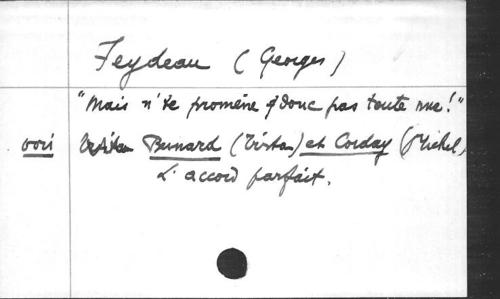 Feydeau (Georges)
"Mais n'te promène d'donc pas toute nue!"
voir Tristan Bernard (Tristan) et Corday (Michel)
L'accord parfait.